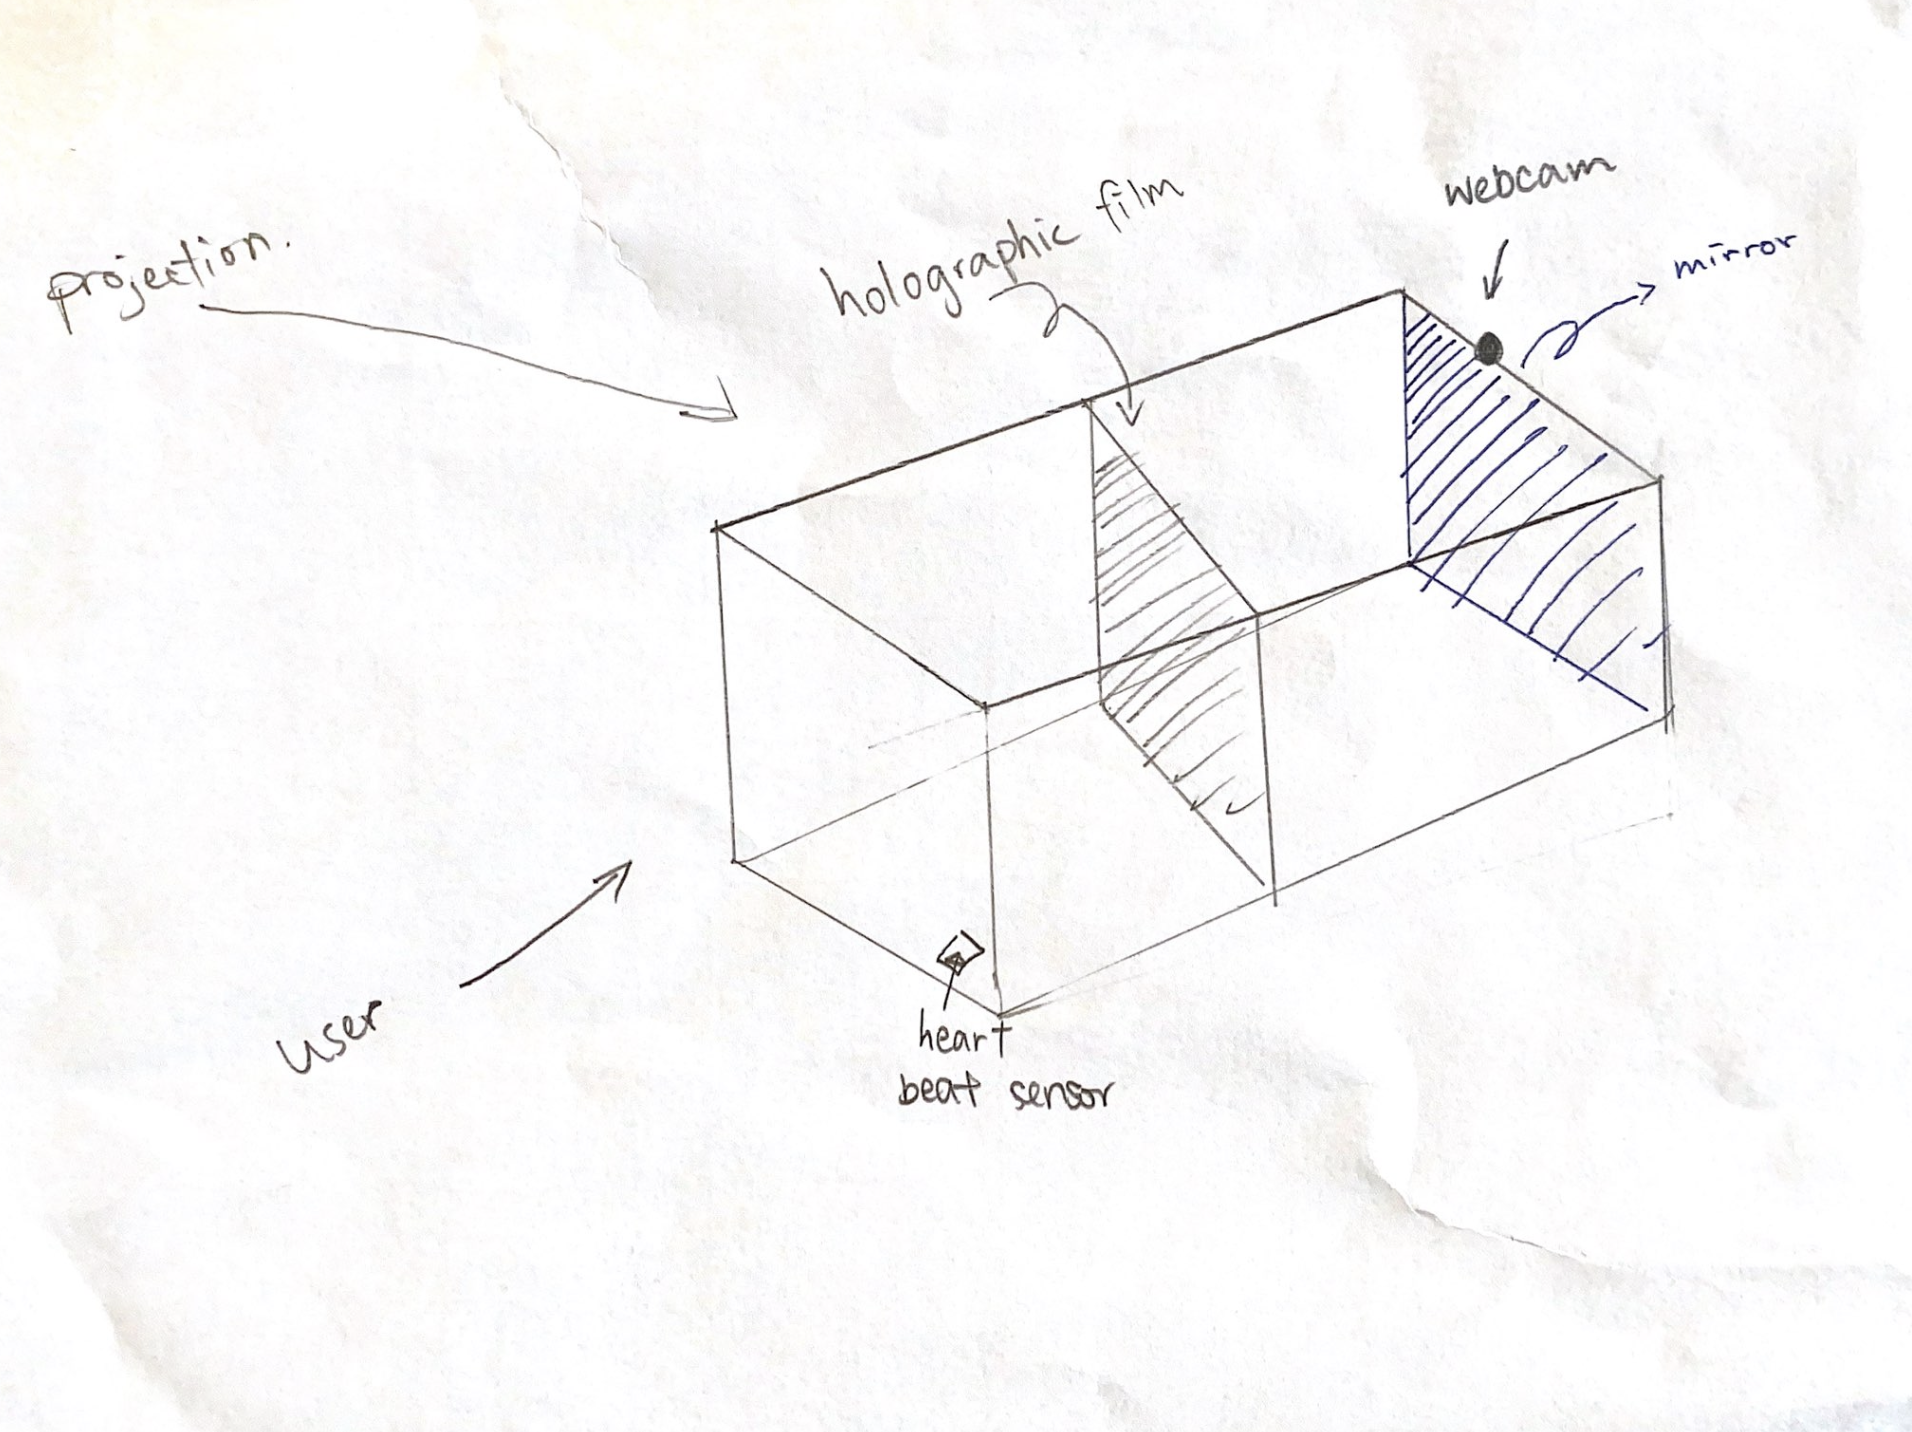 projection.
holographic film
webcam
mirror
user
heart
beat sensor